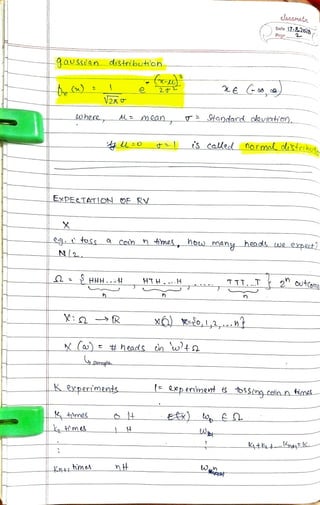 classmate
Date 17.8.2023
Page 2
gaussian distribution.
fx (x) = 1/√2πσ e^-(x-μ)²/2σ² x ∈ (-∞, ∞)
where, μ = mean, σ = standard deviation.
if μ=0 σ=1 is called normal distribution
EXPECTATION OF RV
X
eg. i toss a coin n times, how many heads we expect?
N/2.
Ω = { HHH...H, HTH...H, ....., TTT...T } 2ⁿ outcome
n n n
X: Ω → R X(Ω) = {0,1,2,...n}
X (ω) = # heads in 'ω' ∈ Ω
↳ sample
K experiments 1 = experiment is tossing coin n times
K₁ times 0 H ω₀ ∈ Ω
K₂ times 1 H
: :
Kn+1 times nH